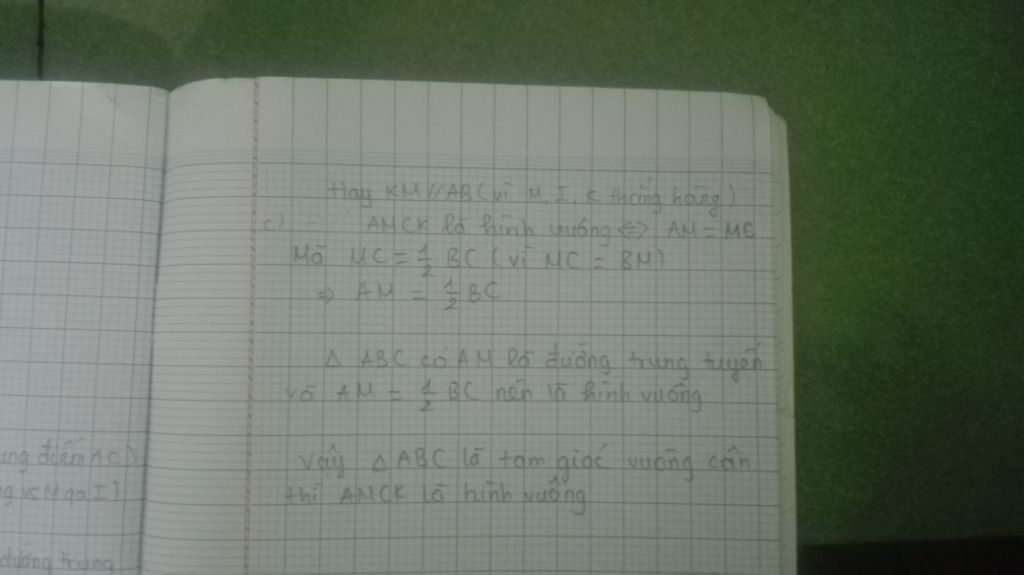 Hay KM//AB (vì M, I, K thẳng hàng)
c) AMCK là hình vuông <=> AM = MC
Mà MC = 1/2 BC (vì MC = BM)
=> AM = 1/2 BC
Δ ABC có AM là đường trung tuyến
và AM = 1/2 BC nên là hình vuông
ung điểm AC)
Vậy Δ ABC là tam giác vuông cân
thì AMCK là hình vuông
đường trung